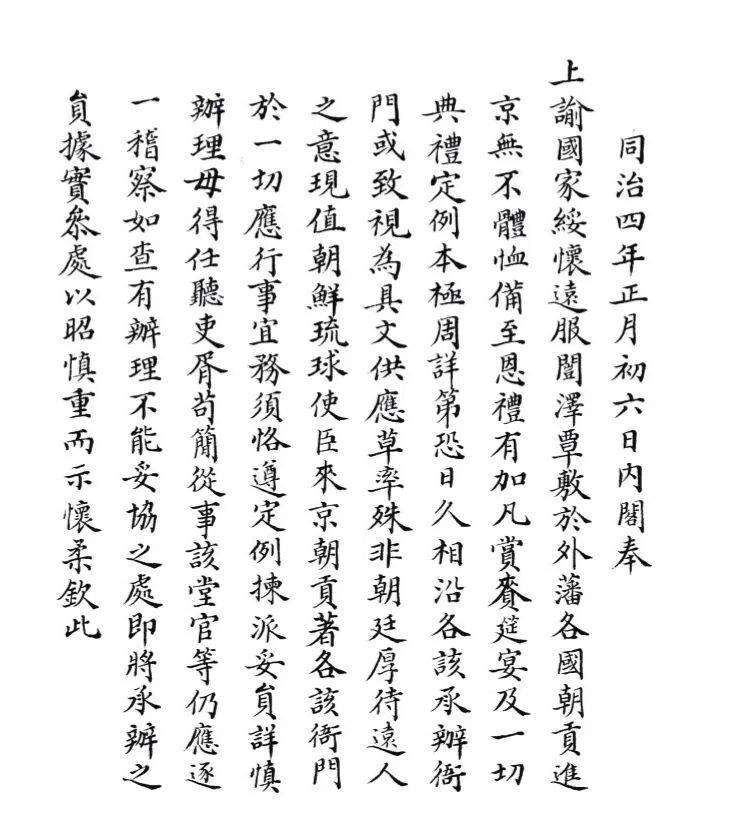 同治四年正月初六日內閣奉
上諭國家綏懷遠服闓澤覃敷於外藩各國朝貢進
京無不體恤備至恩禮有加凡賞賚筵宴及一切
典禮定例本極周詳第恐日久相沿各該承辦衙
門或致視為具文供應草率殊非朝廷厚待遠人
之意現值朝鮮琉球使臣來京朝貢著各該衙門
於一切應行事宜務須恪遵定例揀派妥員詳慎
辦理毋得任聽吏胥苟簡從事該堂官等仍應逐
一稽察如查有辦理不能妥協之處即將承辦之
員據實叅處以昭慎重而示懷柔欽此